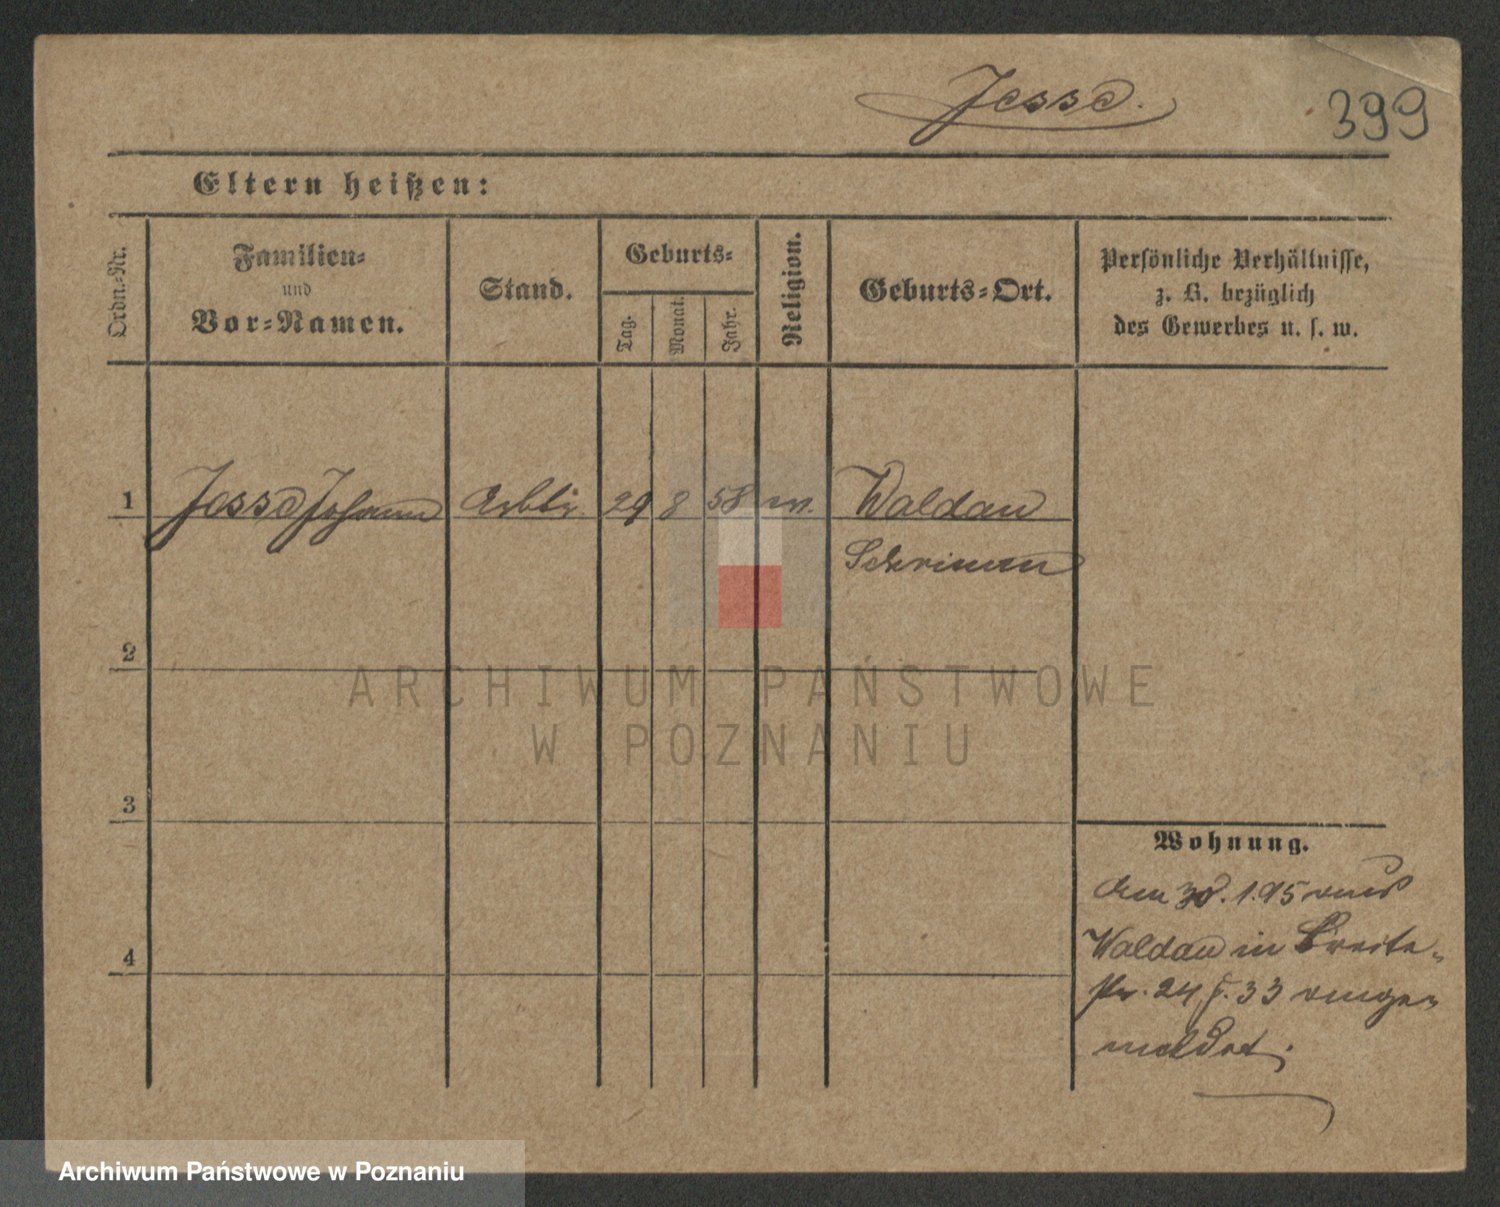 Jesse.
399
Eltern heißen:
Ordn.-Nr.
Familien-
und
Vor-Namen.
Stand.
Geburts-
Tag.
Monat.
Jahr.
Religion.
Geburts-Ort.
Persönliche Verhältnisse,
z. B. bezüglich
des Gewerbes u. s. w.
1 Jesse Johann Arbtr 29 8 58 Waldau
Schrimm
2
ARCHIWUM PAŃSTWOWE
W POZNANIU
3
Wohnung.
den 30. 1. 95 aus
Waldau in Breite-
str. 24 F. 33 ange-
meldet.
4
Archiwum Państwowe w Poznaniu